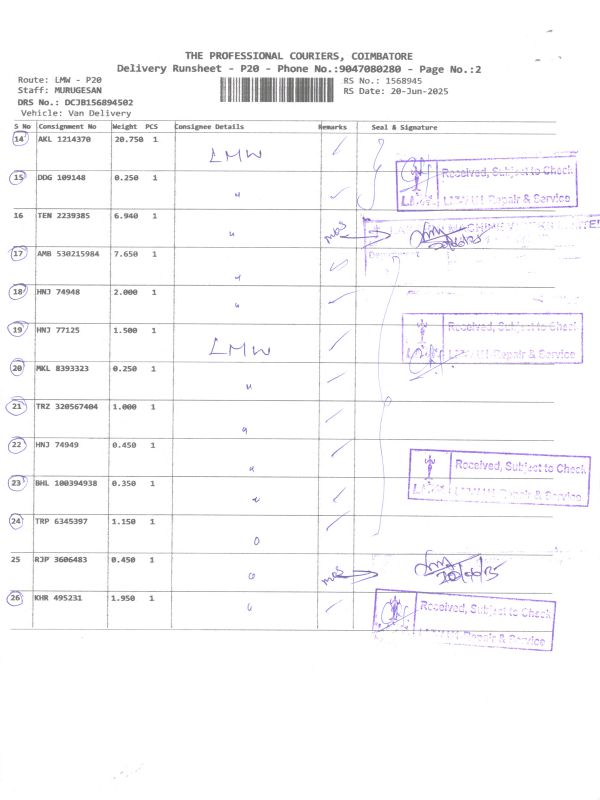 THE PROFESSIONAL COURIERS, COIMBATORE
Delivery Runsheet - P20 - Phone No.:9047080280 - Page No.:2
Route: LMW - P20 RS No.: 1568945
Staff: MURUGESAN RS Date: 20-Jun-2025
DRS No.: DCJB156894502
Vehicle: Van Delivery
S No Consignment No Weight PCS Consignee Details Remarks Seal & Signature
14 AKL 1214370 20.750 1 LMW
Received, Subject to Check
15 DDG 109148 0.250 1 "
Repair & Service
16 TEN 2239385 6.940 1 "
17 AMB 530215984 7.650 1 "
18 HNJ 74948 2.000 1 "
19 HNJ 77125 1.500 1 LMW
Received, Subject to Check
Repair & Service
20 MKL 8393323 0.250 1 "
21 TRZ 320567404 1.000 1 "
22 HNJ 74949 0.450 1 "
Received, Subject to Check
23 BHL 100394938 0.350 1 "
Repair & Service
24 TRP 6345397 1.150 1 "
25 RJP 3606483 0.450 1 "
26 KHR 495231 1.950 1 "
Received, Subject to Check
Repair & Service